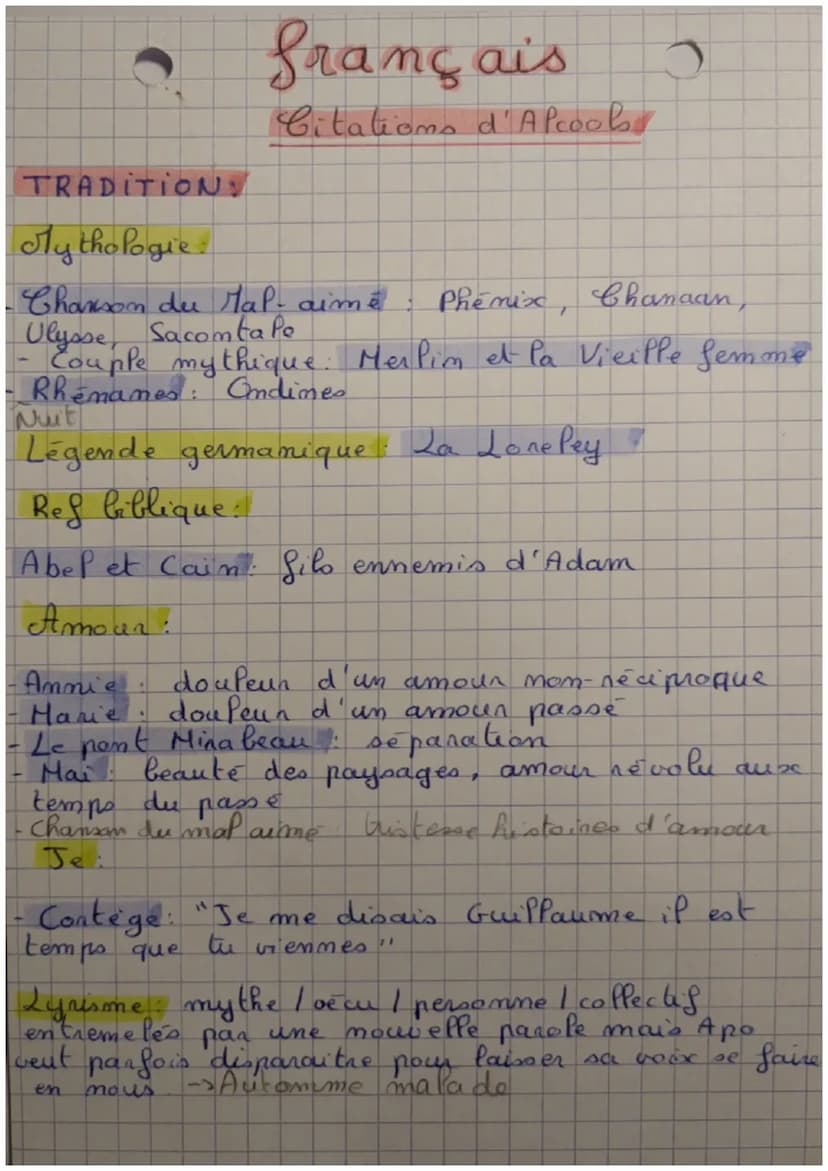 français
Citations d'Alcools
TRADITION:
Mythologie:
- Chanson du Mal-aimé : Phénix, Chanaan,
Ulysse, Sacontale
- Couple mythique: Merlin et la Vieille femme
- Rhénanes: Ondines
Nuit
Légende germanique: La Loreley
Ref biblique:
Abel et Cain: fils ennemis d'Adam
Amour:
- Annie : douleur d'un amour non-réciproque
- Marie : douleur d'un amour passé
- Le pont Mirabeau : séparation
- Mai : beauté des paysages, amour révolu aux
temps du passé
- Chanson du mal aimé tristesse histoires d'amour
Je:
- Cortège: "Je me disais Guillaume il est
temps que tu viennes"
Lyrisme: mythe / vécu / personne / collectif
entremelés par une nouvelle parole mais Apo
veut parfois disparaitre pour laisser sa voix se faire
en nous -> Automne malade